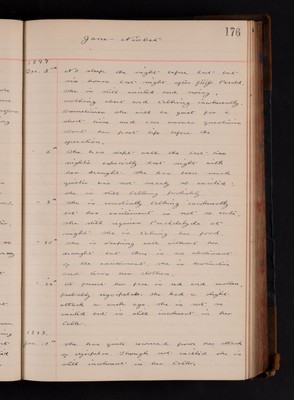 176
Jane Nisbet
1897
Dec. 3rd No sleep the night before last but
six hours last night after
She is still excited and noisy,
nothing about and talking incessantly.
Sometimes she will be quiet for a
short time and can answer questions
about her past life before the
operation.
She has slept well the last two
nights especially last night with
her draught. She has been much
quieter and not nearly so excited.
She is still talking
She is constantly talking incessantly
but her excitement is not so acute.
She still requires Paraldehyde at
night. She is taking her food.
She is sleeping well without her
draught but there is no abatement
of the excitement. She is destructive
and tears her clothes.
At present her face is red and swollen,
probably erysipelas. She had a slight
attack a week ago. She is not so
excited but is still incoherent in her
talk.
1898.
Jan. She has quite recovered from her attack
of erysipelas. Though not excited she is
still incoherent in her talk.